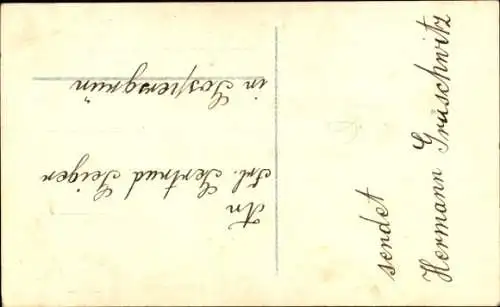 An
Frl. Gertrud Geigen
in Gospersgrün
sendet
Hermann Gruschwitz